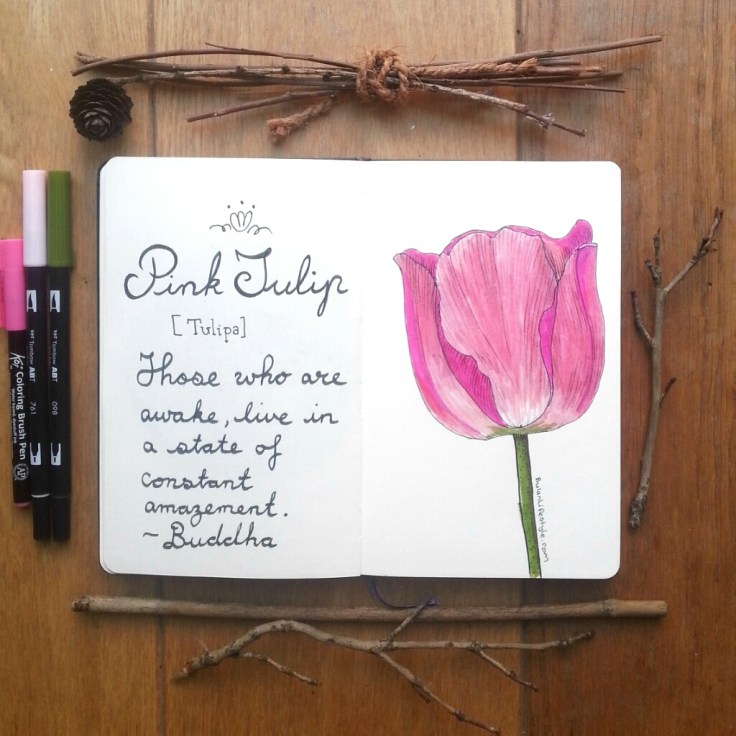 Pink Tulip
[Tulipa]
Those who are
awake, live in
a state of
constant
amazement.
~ Buddha
BulanLifestyle.com
Koi Coloring Brush Pen
Tombow ABT
761
Tombow ABT
098